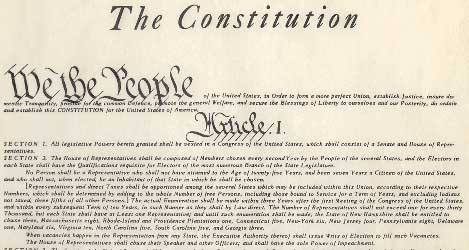 The Constitution
We the People of the United States, in Order to form a more perfect Union, establish Justice, insure do-
mestic Tranquility, provide for the common Defence, promote the general Welfare, and secure the Blessings of Liberty to ourselves and our Posterity, do ordain
and establish this CONSTITUTION for the United States of America.
Article I.
SECTION 1. All legislative Powers herein granted shall be vested in a Congress of the United States, which shall consist of a Senate and House of Repre-
sentatives.
SECTION 2. The House of Representatives shall be composed of Members chosen every second Year by the People of the several States, and the Electors in
each State shall have the Qualifications requisite for Electors of the most numerous Branch of the State Legislature.
No Person shall be a Representative who shall not have attained to the Age of twenty-five Years, and been seven Years a Citizen of the United States,
and who shall not, when elected, be an Inhabitant of that State in which he shall be chosen.
[Representatives and direct Taxes shall be apportioned among the several States which may be included within this Union, according to their respective
Numbers, which shall be determined by adding to the whole Number of free Persons, including those bound to Service for a Term of Years, and excluding Indians
not taxed, three fifths of all other Persons.] The actual Enumeration shall be made within three Years after the first Meeting of the Congress of the United States,
and within every subsequent Term of ten Years, in such Manner as they shall by Law direct. The Number of Representatives shall not exceed one for every thirty
Thousand, but each State shall have at Least one Representative; and until such enumeration shall be made, the State of New Hampshire shall be entitled to
chuse three, Massachusetts eight, Rhode-Island and Providence Plantations one, Connecticut five, New-York six, New Jersey four, Pennsylvania eight, Delaware
one, Maryland six, Virginia ten, North Carolina five, South Carolina five, and Georgia three.
When vacancies happen in the Representation from any State, the Executive Authority thereof shall issue Writs of Election to fill such Vacancies.
The House of Representatives shall chuse their Speaker and other Officers; and shall have the sole Power of Impeachment.